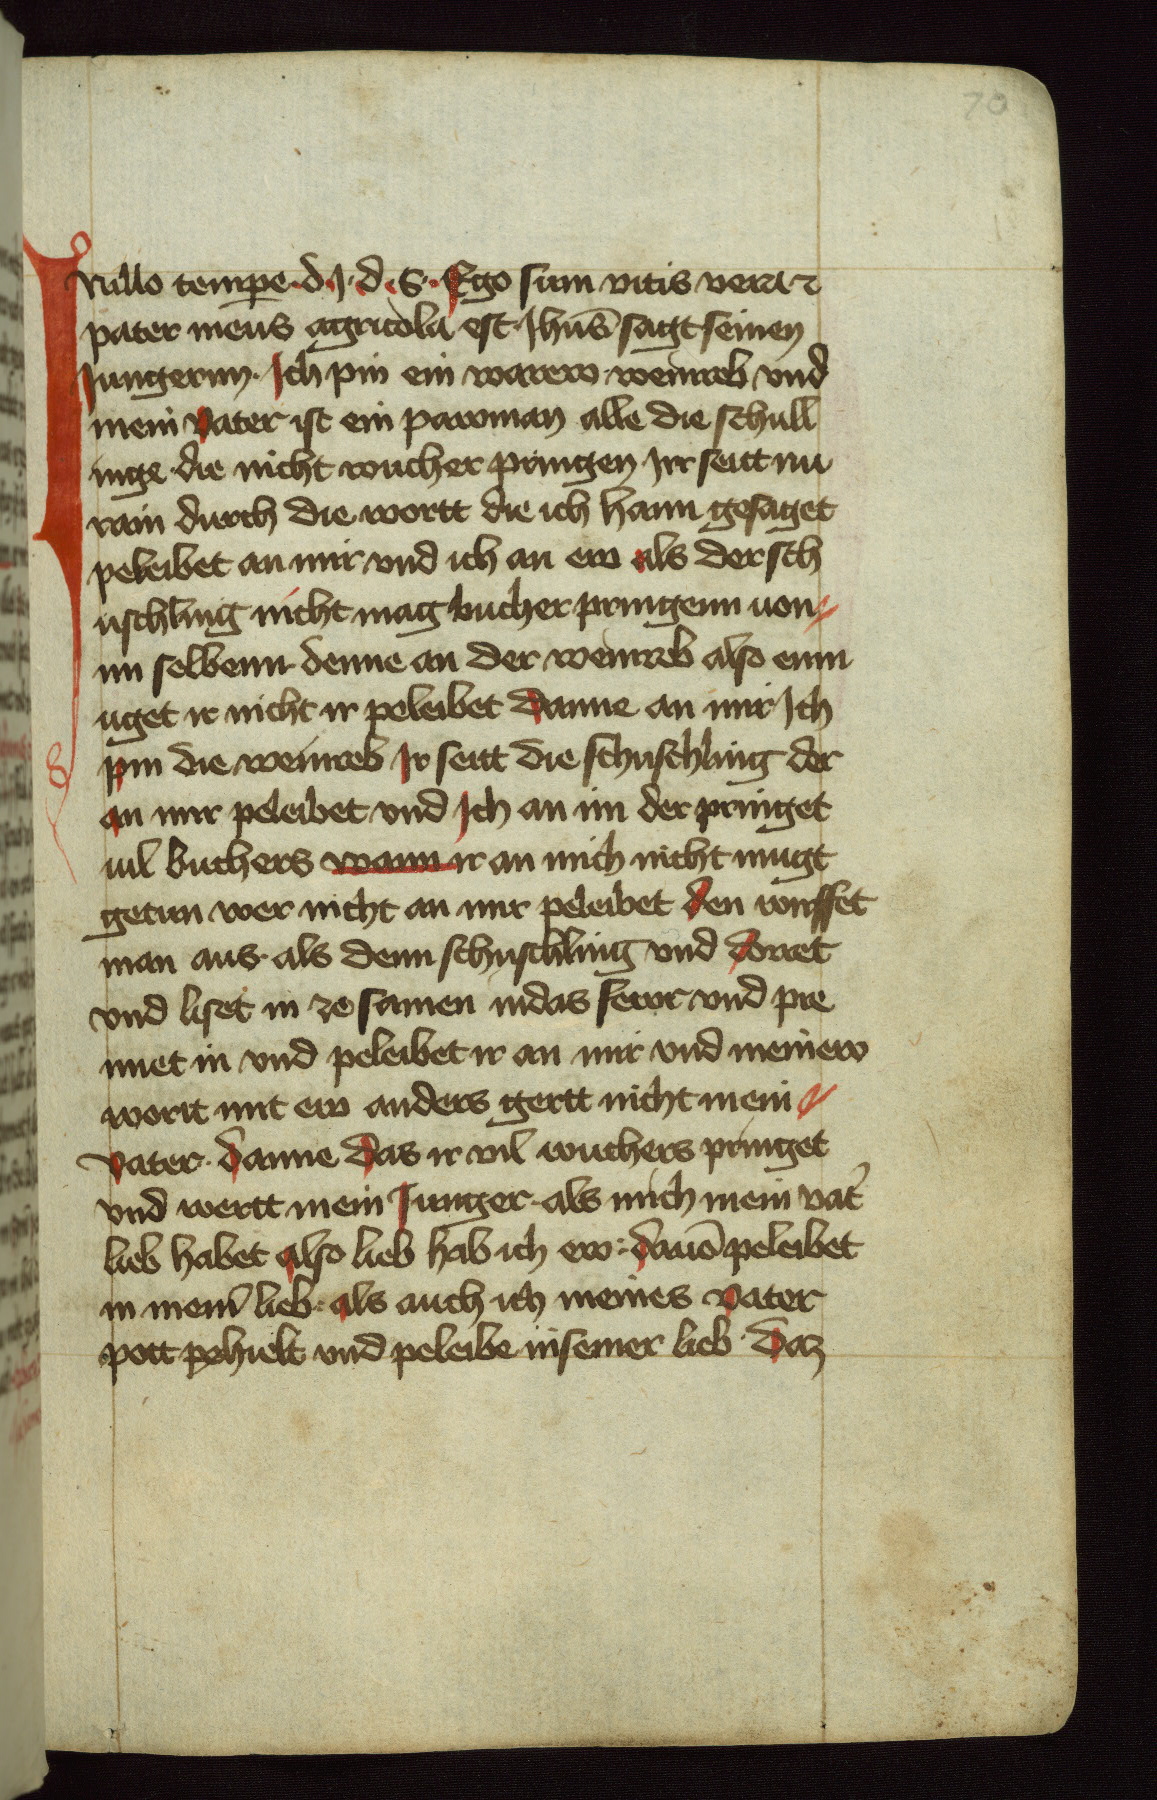 70
In illo tempe · d · J · d · s · Ego sum vitis vera ⁊
pater meus agricola est · Jhus̄ sagt seinen
Jungernn · Ich pin ein warew weinreb vnd
mein vater ist ein pawman alle die schull
inge die nicht wucher pringen Irr seitt nu
rain durch die wortt die ich hann gesaget
peleibet an mir vnd ich an ew als der sch
uschling nicht mag bucher pringenn uon
im selbenn denne an der weinreb also enm
uget ir nicht ir peleibet danne an mir Ich
pin die weinreb Ir seitt die schuschling der
an mir peleibet vnd Ich an im der pringet
uil buchers wann ir an mich nicht mugt
getun wer nicht an mir peleibet den wirffet
man aus als denn schuschling vnd dorret
vnd liset in ze samen in das fewr vnd pre
nnet in vnd peleibet ir an mir vnd meinew
wortt mit ew anders gertt nicht mein
vater · danne das ir vil wuchers pringet
vnd wertt mein Junger als mich mein vat̕
lieb habet also lieb hab ich ew : dauō peleibet
in mein̕ lieb · als auch ich meines vater
pott pehielt vnd peleibe in seiner lieb · daz